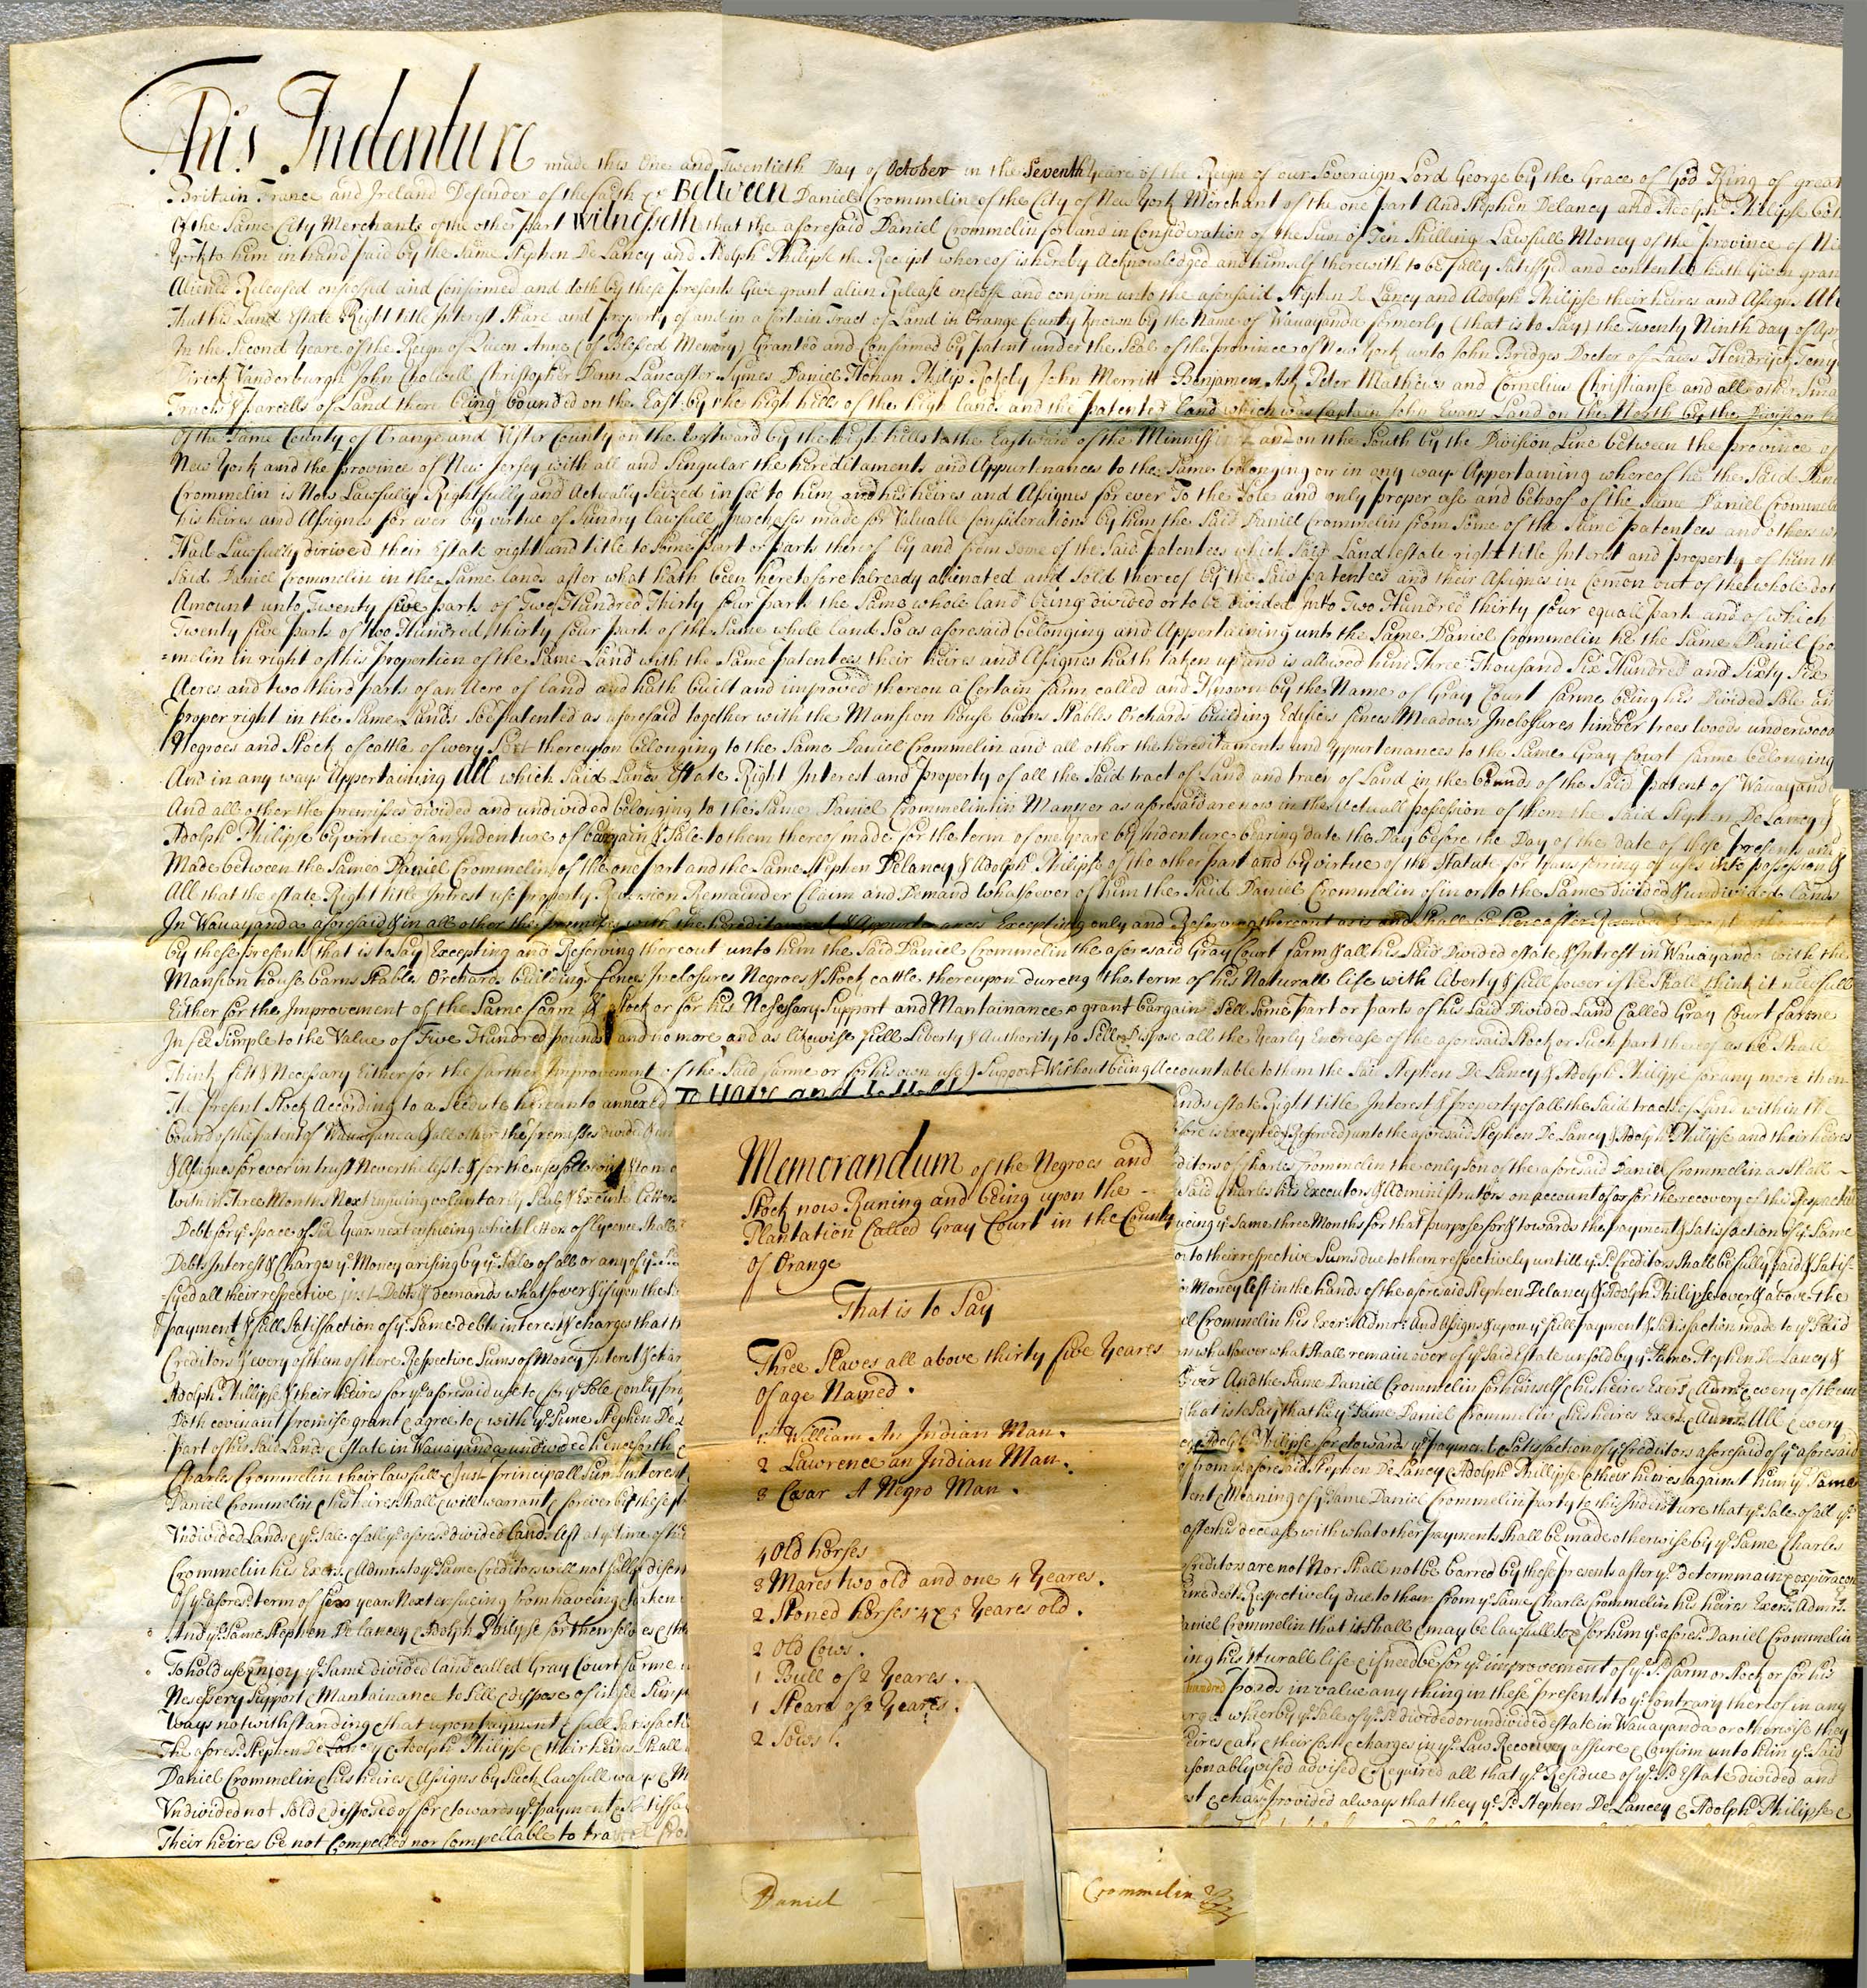 This Indenture made this One and Twentieth Day of October in the Seventh Yeare of the Reign of our Soveraign Lord George by the Grace of God King of great
Britain France and Ireland Defender of the faith &c Between Daniel Crommelin of the City of New York Merchant of the one part And Stephen Delancy and Adolph Philipse both
Of the Same City Merchants of the other Part Witnesseth that the aforesaid Daniel Crommelin for and in Consideration of the Sum of Ten Shillings Lawfull Money of the Province of New
York to him in hand paid by the Same Stephen De Lancy and Adolph Philipse the Receipt whereof is hereby Acknowledged and himself therewith to be fully Satisfyed and contented hath Given gran
Aliened Released enfeofed and Confirmed and doth by these Presents Give grant alien Release enfeofe and confirm unto the aforesaid Stephen De Lancy and Adolph Philipse their heires and Assigns All
That his Land Estate Right title Interest Share and Property of and in a Certain Tract of Land in Orange County known by the Name of Wauayanda formerly (that is to Say) the Twenty Ninth day of Apr
In the Second Yeare of the Reign of Queen Anne (of Blessed Memory) Granted and Confirmed by Patent under the Seal of the province of New York unto John Bridges Docter of Laws Hendrick Teny
Dirick Vanderburgh John Cholwell Christopher Denn Lancaster Symes Daniel Honan Philip Rokeby John Merritt Benjamen Ask Peter Mathews and Cornelius Christianse and all other
Tracts & Parcells of Land there being bounded on the East by the high hills of the high lands and the patented land which was Captain John Evans Land on the North by the Division
Of the Same County of Orange and Ulster County on the Westward by the high hills to the Eastward of the Minnisink and on the South by the Division Line between the province of
New York and the province of New Jersey with all and Singular the hereditaments and Appurtenances to the Same belonging or in any ways Appertaining whereof he the Said Dani
Crommelin is Now Lawfully Rightfully and Actually Seized in fee to him and his heires and Assignes for ever To the Sole and only proper use and behoof of the Same Daniel Crommeli
his heires and Assignes for ever by virtue of Sundry lawfull purchases made for Valuable Considerations by him the Said Daniel Crommelin from Some of the Same patentees and others w
Had Lawfully dirived their Estate right and title to Some part or parts thereof by and from some of the Said patentees which Said Land estate right title Interest and property of him th
Said Daniel Crommelin in the Same lands after what hath been heretofore already alienated and Sold thereof by the Said patentees and their Assignes in Comon out of the whole dot
Amount unto Twenty five parts of Two Hundred Thirty four parts the Same whole land being divided or to be divided Into Two Hundred thirty four equall parts and of which
Twenty five parts of two Hundred thirty four parts of the Same whole land So as aforesaid belonging and Appertaining unto the Same Daniel Crommelin he the Same Daniel Cro
=melin in right of his Proportion of the Same Land with the Same patentees their heires and Assignes hath taken up and is allowed him Three Thousand Six Hundred and Sixty Six
Acres and two third parts of an Acre of land and hath built and improved thereon a Certain farm called and Known by the Name of Gray Court farme being his Divided Sole an
proper right in the Same Lands So Patented as aforesaid together with the Mansion house barns Stables Orchards building Edifices fences Meadows Inclosures timber trees woods underwood
Negroes and Stock of cattle of every Sort thereupon belonging to the Same Daniel Crommelin and all other the hereditaments and Appurtenances to the Same Gray Court farme belonging
And in any ways Appertaining All which Said Lands Estate Right Interest and Property of all the Said tract of Land and tracts of Land in the bounds of the Said Patent of Wauayanda
And all other the premisses divided and undivided belonging to the Same Daniel Crommelin in Manner as aforesaid are now in the Actuall possession of them the Said Stephen De Lancy &
Adolph Philipse by virtue of an Indenture of bargain & Sale to them thereof made for the term of one Yeare by Indenture bearing date the Day before the Day of the date of these presents and
Made between the Same Daniel Crommelin of the one part and the Same Stephen Delancy & Adolph Philipse of the other part and by virtue of the Statute for transferring of uses into possession &
All that the estate Right title Intrest use property Reversion Remainder Claim and Demand whatsoever of him the Said Daniel Crommelin of in or to the Same divided & undivided lands
In Wauayanda aforesaid & in all other the premisses with the hereditaments & Appurtenances Excepting only and Reserving thereout as is and shall be hereafter
by these presents (that is to Say) Excepting and Reserving thereout unto him the Said Daniel Crommelin the aforesaid Gray Court farm & all his Said Divided estate & Intrest in Wauayanda with the
Mansion house barns Stables Orchards building fences Inclosures Negroes & Stock cattle thereupon dureing the term of his Naturall life with liberty & full power if he Shall think it needfull
Either for the Improvement of the Same farm & Stock or for his Nesessary Support and Mantainance to grant bargain & Sell Some part or parts of his Said Divided Land Called Gray Court farme
In fee Simple to the Value of Five Hundred pounds and no more and as likewise full Liberty & Authority to Sell or Dispose all the Yearly Encrease of the aforesaid Stock or Such part thereof as he Shall
Think fitt & Necessary Either for the farther Improvement of the Said farme or for his own use & Support Without being Accountable to them the Said Stephen De Lancy & Adolph Philipse for any more then
The Present Stock According to a Scedule hereunto annexed To Have and to Hold nds estate Right title Interest & property of all the Said tracts of Land within the
bounds of the Patent of Wauayanda & all other the Premisses divided & un fore is excepted & Reserved) unto the aforesaid Stephen De Lancy & Adolph Philipse and their heires
& Assignes for ever in trust Nevertheless to & for the uses following & to no ditors of Charles Crommelin the only Son of the aforesaid Daniel Crommelin as Shall
Within Three Months Next ensueing voluntarly Seale & Execute letters Said Charles his Executors & Administrators on account of or for the recovery of the Respective
Debts for ye Space of Six Years next ensueing which letters of lycence Shall ueing ye Same three Months for that purpose for & towards the payment & Satisfaction of ye Same
Debts Interest & Charges ye Money arising by ye Sale of all or any of ye on to their respective Sums due to them respectively untill ye Sd Creditors Shall be fully paid & Satis=
=fyed all their respective just Debts & demands whatsoever & if upon the Money left in the hands of the aforesaid Stephen Delancy & Adolph Philipse over & above the
payment & full Satisfaction of ye Same debts interest & charges that th el Crommelin his Exers Admrs And Assigns & upon ye full payment & Satisfaction made to ye Said
Creditors & every of them of there Respective Sums of Money Interest & char whatsoever what shall remain over of ye Said Estate unsold by ye Same Stephen De Lancy &
Adolph Philipse & their heires for ye aforesaid use to & for ye Sole & only pro ver And the Same Daniel Crommelin for himself & his heires Exers & Admrs & every of them
Doth covinant promise grant & agree to & with ye Same Stephen De L that is to Say that he ye Same Daniel Crommelin & his heires Exers & Admrs All & every
part of his Said Lands & Estate in Wauayanda undivided henceforth Adolph Philipse for & towards ye payment & Satisfaction of ye Creditors aforesaid of ye aforesaid
Charles Crommelin their lawfull & Just principall Sum Interest from ye aforesaid Stephen De Lancy & Adolph Phillipse & their heires against him ye Same
Daniel Crommelin & his heires Shall & will warrant & for ever by these pr tent & Meaning of ye Same Daniel Crommelin party to this Indenture that ye Sale of all ye
Undivided Lands & ye Sale of all ye aforesd divided lands left at ye time of his after his decease with what other payments Shall be made otherwise by ye Same Charles
Crommelin his Exers & Admrs to ye Same Creditors will not fully Creditors are not Nor Shall not be barred by these presents after ye determinaicon & expiracon
Of ye aforesd term of Six years Next ensueing from haveing & taken Respectively due to them from ye Same Charles Crommelin his heires Exers & Admrs
And ye Same Stephen De lancey & Adolph Philipse for themselves & th aniel Crommelin that it Shall & may be lawfull to & for him ye aforesd Daniel Crommelin
To hold use & enjoy ye Same divided land called Gray Court farme ing his Naturall life & if need be for ye improvement of ye Sd farm or Stock or for his
Nesessery Support & Mantainance to Sell & dispose of in fee Simp hundred pounds in value any thing in these presents to ye Contrary thereof in any
Ways notwithstanding & that upon payment & full Satisfacti wherby ye Sale of ye Sd divided or undivided estate in Wauayanda or otherwise they
The aforesd Stephen De Lancy & Adolph Philipse & their heires Shall charges in ye Law Reconvey assure & Confirm unto him ye Said
Daniel Crommelin & his heires & Assigns by Such lawfull ways & M asonably devised advised & Required all that ye Residue of ye Sd Estate divided and
Undivided not Sold & disposed of for & towards ye payment & Satisfa provided always that they ye Sd Stephen De Lancey & Adolph Philipse &
Their heires be not Compelled nor Compellable to travel
Memorandum of the Negroes and
Stock now Runing and being upon the
Plantation Called Gray Court in the County
Of Orange
That is to Say
Three Slaves all above thirty five Yeares
Of age Named.
1 William An Indian Man.
2 Lawrence an Indian Man.
3 Cæsar A Negro Man.
4 Old horses
3 Mares two old and one 4 Yeares.
2 Stoned horses 4 & 5 Yeares old.
2 Old Cows.
1 Bull of 2 Yeares.
1 Steard of 2 Yeares.
2 Sows.
Daniel Crommelin